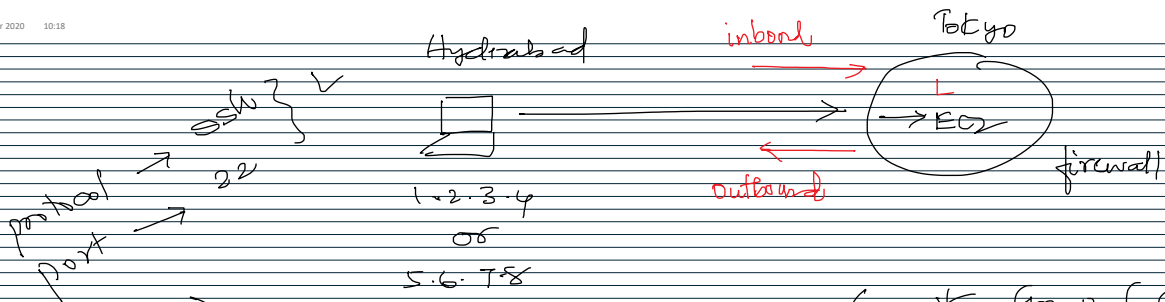 r 2020 10:18
Hyderabad
inbond
Tokyo
ssh
22
protocol
port
L
EC2
firewall
outbound
1.2.3.4
or
5.6.7.8